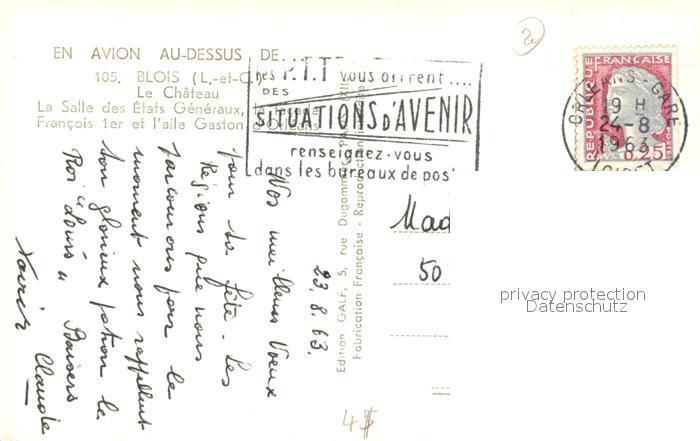 EN AVION AU-DESSUS DE...
105. BLOIS (L.-et-C.)
Le Château
La Salle des États Généraux, la façade
François 1er et l'aile Gaston d'Orléans
les P.T.T vous offrent....
DES
SITUATIONS D'AVENIR
renseignez-vous
dans les bureaux de pos
2
REPUBLIQUE FRANÇAISE
0,25
ORLEANS-GARE
19 H
24-8
1963
LOIRET
23.8.63.
Nos meilleurs Voeux
pour ta fête. Les
Régions que nous
parcourons pour le
moment nous rappellent
ton glorieux patron le
Roi "Louis". Baisers
Claude
Edition GALF, 5, rue Dugommier
Fabrication Française - Reproduction
Mad
50
privacy protection
Datenschutz